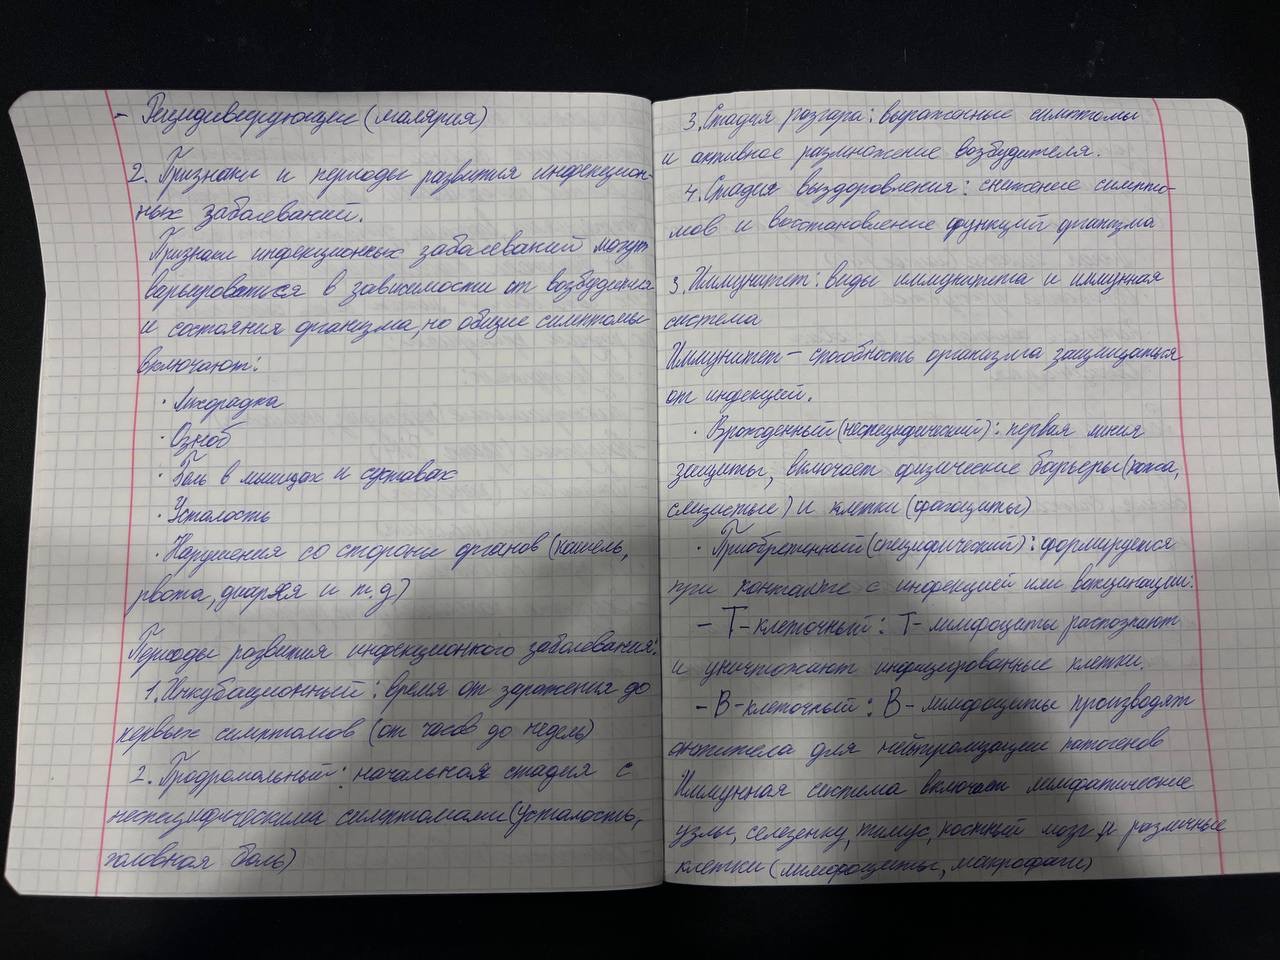 - Рецидивирующие (малярия)
2. Признаки и периоды развития инфекцион-
ных заболеваний.
Признаки инфекционных заболеваний могут
варьироваться в зависимости от возбудителя
и состояния организма, но общие симптомы
включают:
· Лихорадка
· Озноб
· Боль в мышцах и суставах
· Усталость
· Нарушения со стороны органов (кашель,
рвота, диарея и т.д)
Периоды развития инфекционного заболевания:
1. Инкубационный: время от заражения до
первых симптомов (от часов до недель)
2. Продромальный: начальная стадия с
неспецифическими симптомами (усталость,
головная боль)
3. Стадия разгара: выраженные симптомы
и активное размножение возбудителя.
4. Стадия выздоровления: снижение симпто-
мов и восстановление функций организма
3. Иммунитет: виды иммунитета и иммунная
система
Иммунитет - способность организма защищаться
от инфекций.
· Врожденный (неспецифический): первая линия
защиты, включает физические барьеры (кожа,
слизистые) и клетки (фагоциты)
· Приобретенный (специфический): формируется
при контакте с инфекцией или вакцинации:
- Т-клеточный: Т-лимфоциты распознают
и уничтожают инфицированные клетки.
- В-клеточный: В-лимфоциты производят
антитела для нейтрализации патогенов
Иммунная система включает лимфатические
узлы, селезенку, тимус, костный мозг и различные
клетки (лимфоциты, макрофаги)